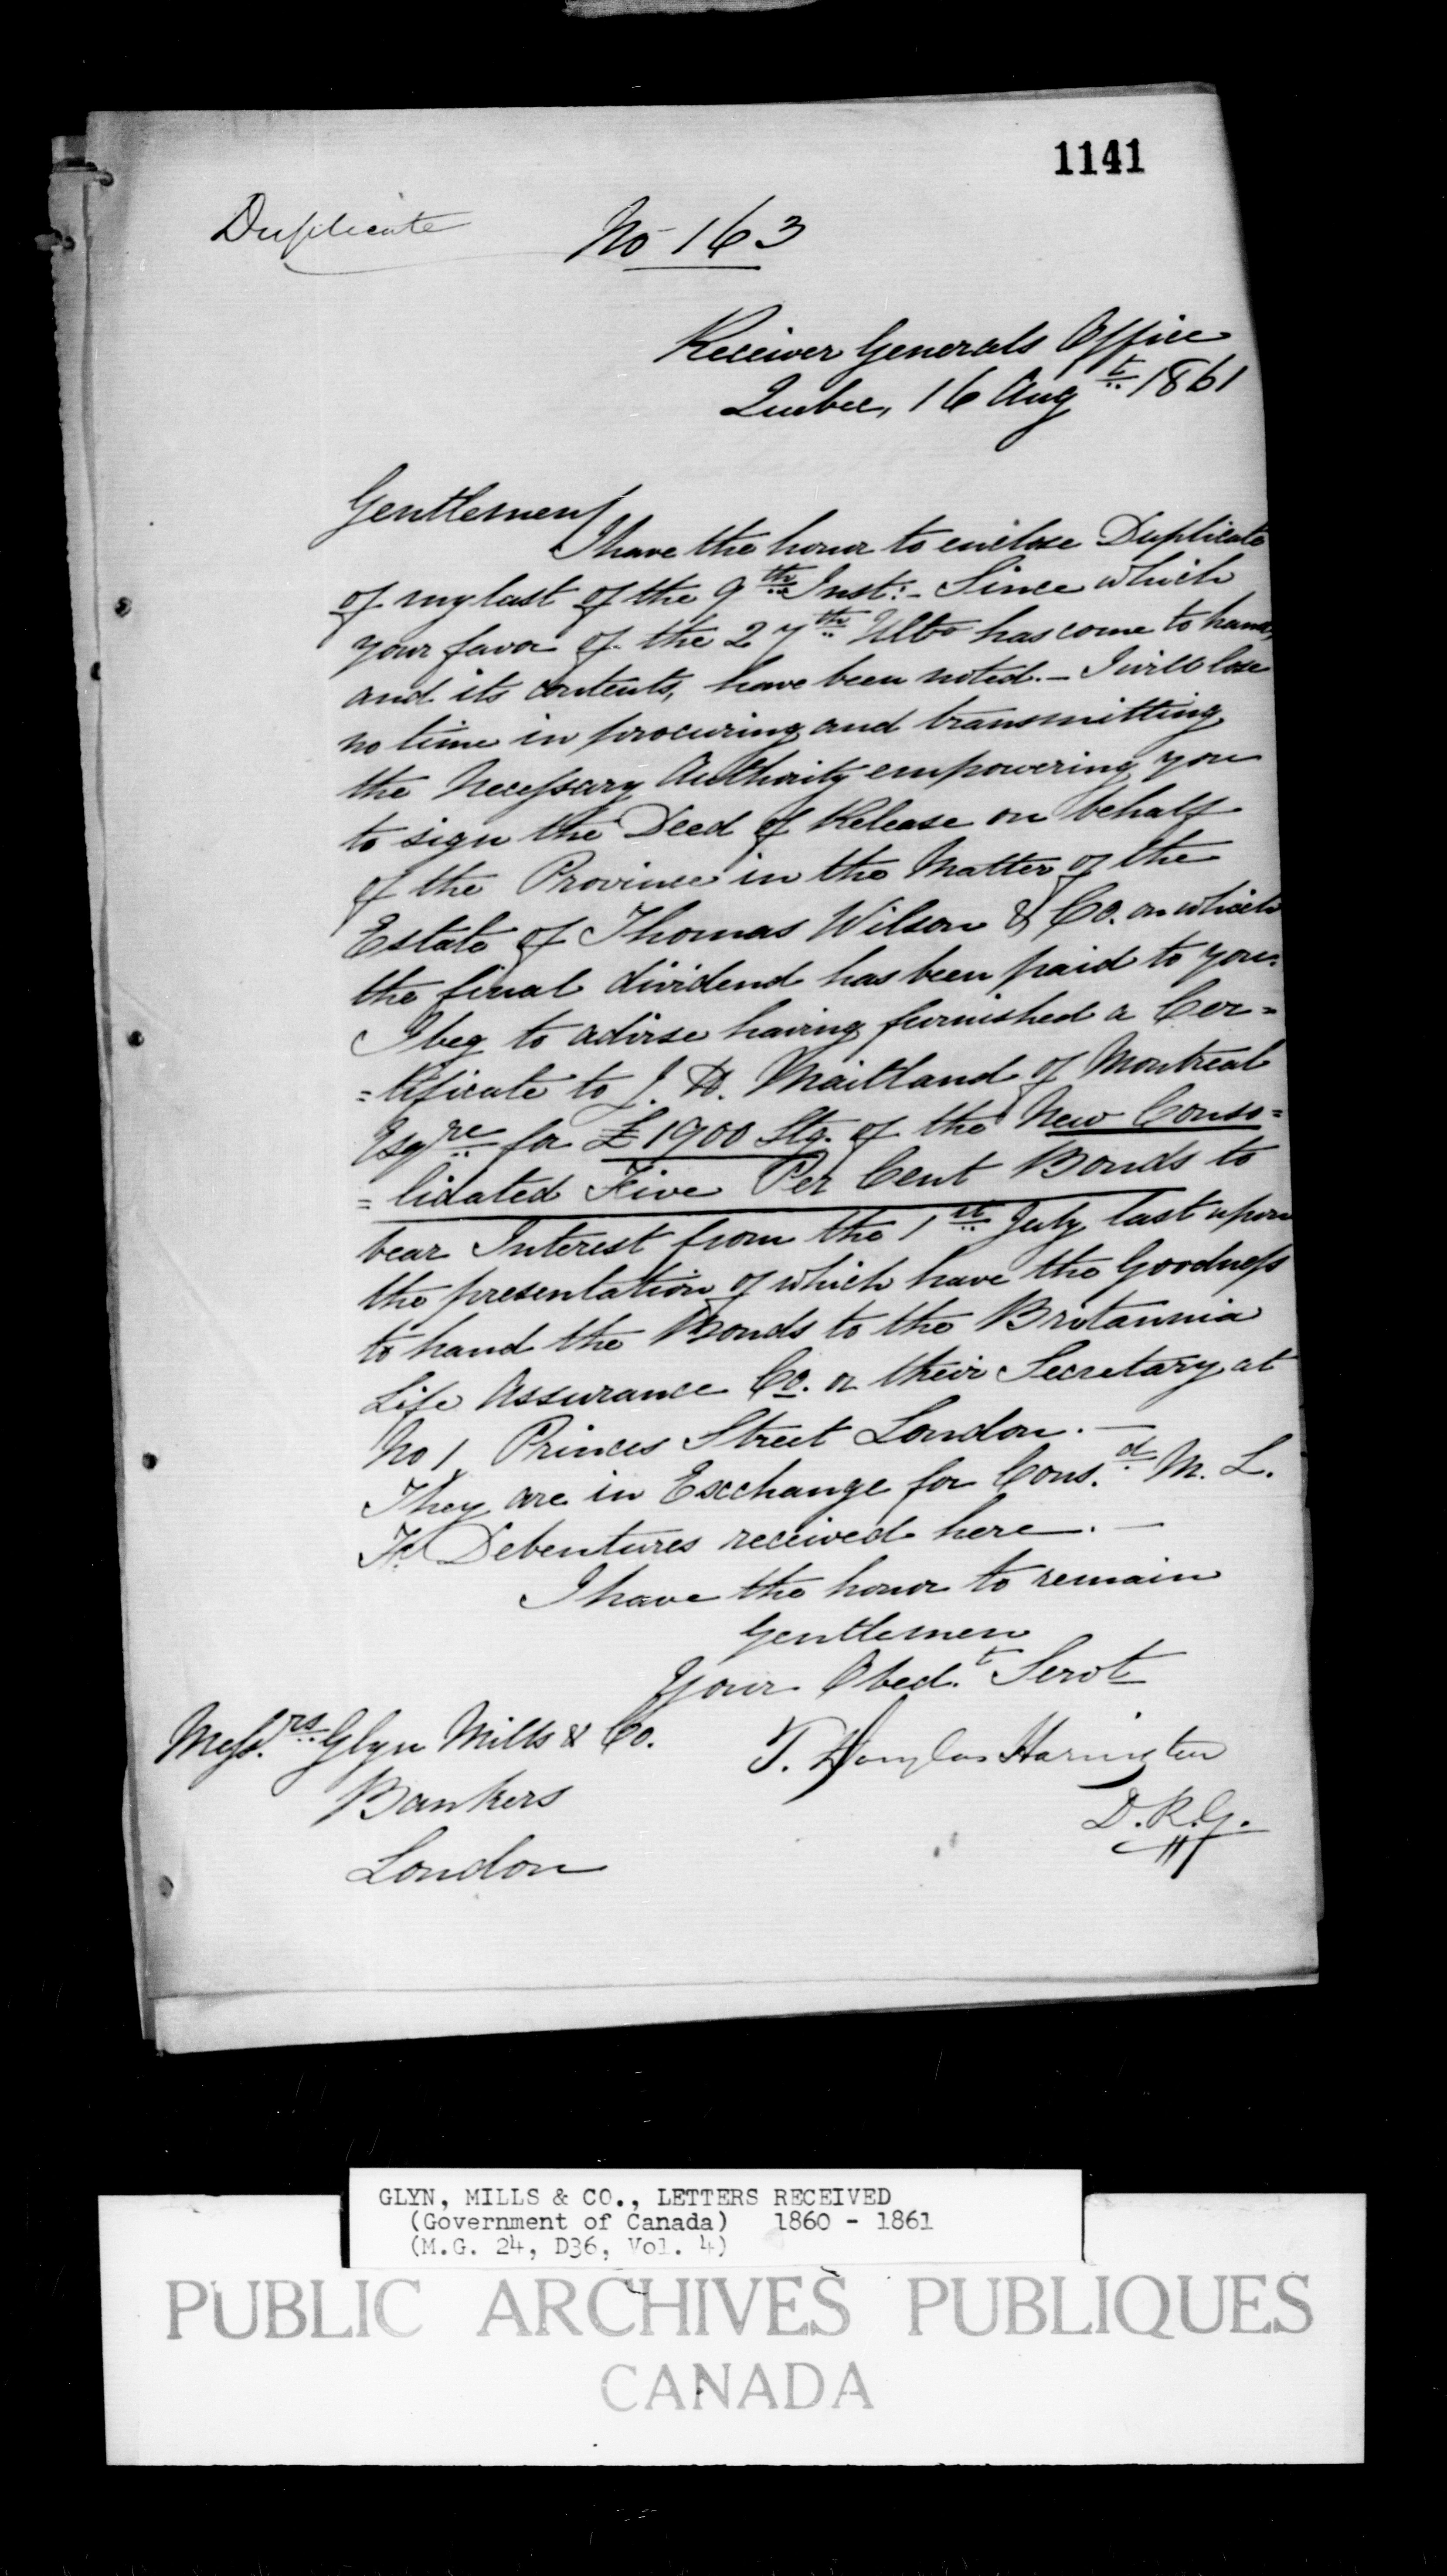 1141
Duplicate
No 163
Receiver Generals Office
Quebec, 16 Augt 1861
Gentlemen
I have the honor to enclose Duplicate
of my last of the 9th Inst:- Since which
your favor of the 27th Ulto has come to hand,
and its contents, have been noted.- I will lose
no time in procuring and transmitting
the Necessary Authority empowering you
to sign the Deed of Release on behalf
of the Province in the Matter of the
Estate of Thomas Wilson & Co. on which
the final dividend has been paid to you.
I beg to advise having furnished a Cer=
=tificate to J. D. Maitland of Montreal
Esqre for £1900 Stg. of the New Conso=
=lidated Five Per Cent Bonds to
bear Interest from the 1st July last upon
the presentation of which have the Goodness
to hand the Bonds to the Britannia
Life Assurance Co. or their Secretary at
No 1 Princes Street London.-
They are in Exchange for Cons.d M. L.
Fd Debentures received here.-
I have the honor to remain
Gentlemen
Your Obed.t Servt
T. Douglas Harington
D.R.G.
Messrs. Glyn Mills & Co.
Bankers
London
GLYN, MILLS & CO., LETTERS RECEIVED
(Government of Canada) 1860 - 1861
(M.G. 24, D36, Vol. 4)
PUBLIC ARCHIVES PUBLIQUES
CANADA